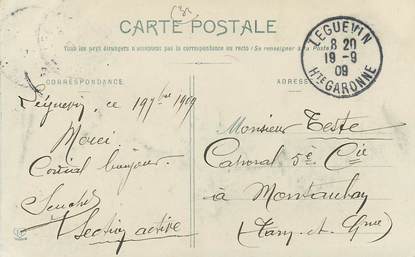 CARTE POSTALE
Tous les pays étrangers n'acceptent pas la correspondance au recto (Se renseigner à la Poste)
CORRESPONDANCE
ADRESSE
LEGUEVIN
8 20
19 - 9
09
HTE GARONNE
Léguevin, ce 19 7bre 1909
Merci
Cordial bonjour.
Section active
Monsieur Teste
Caporal 5è Cie
à Montauban
(Tarn-et-Gne)